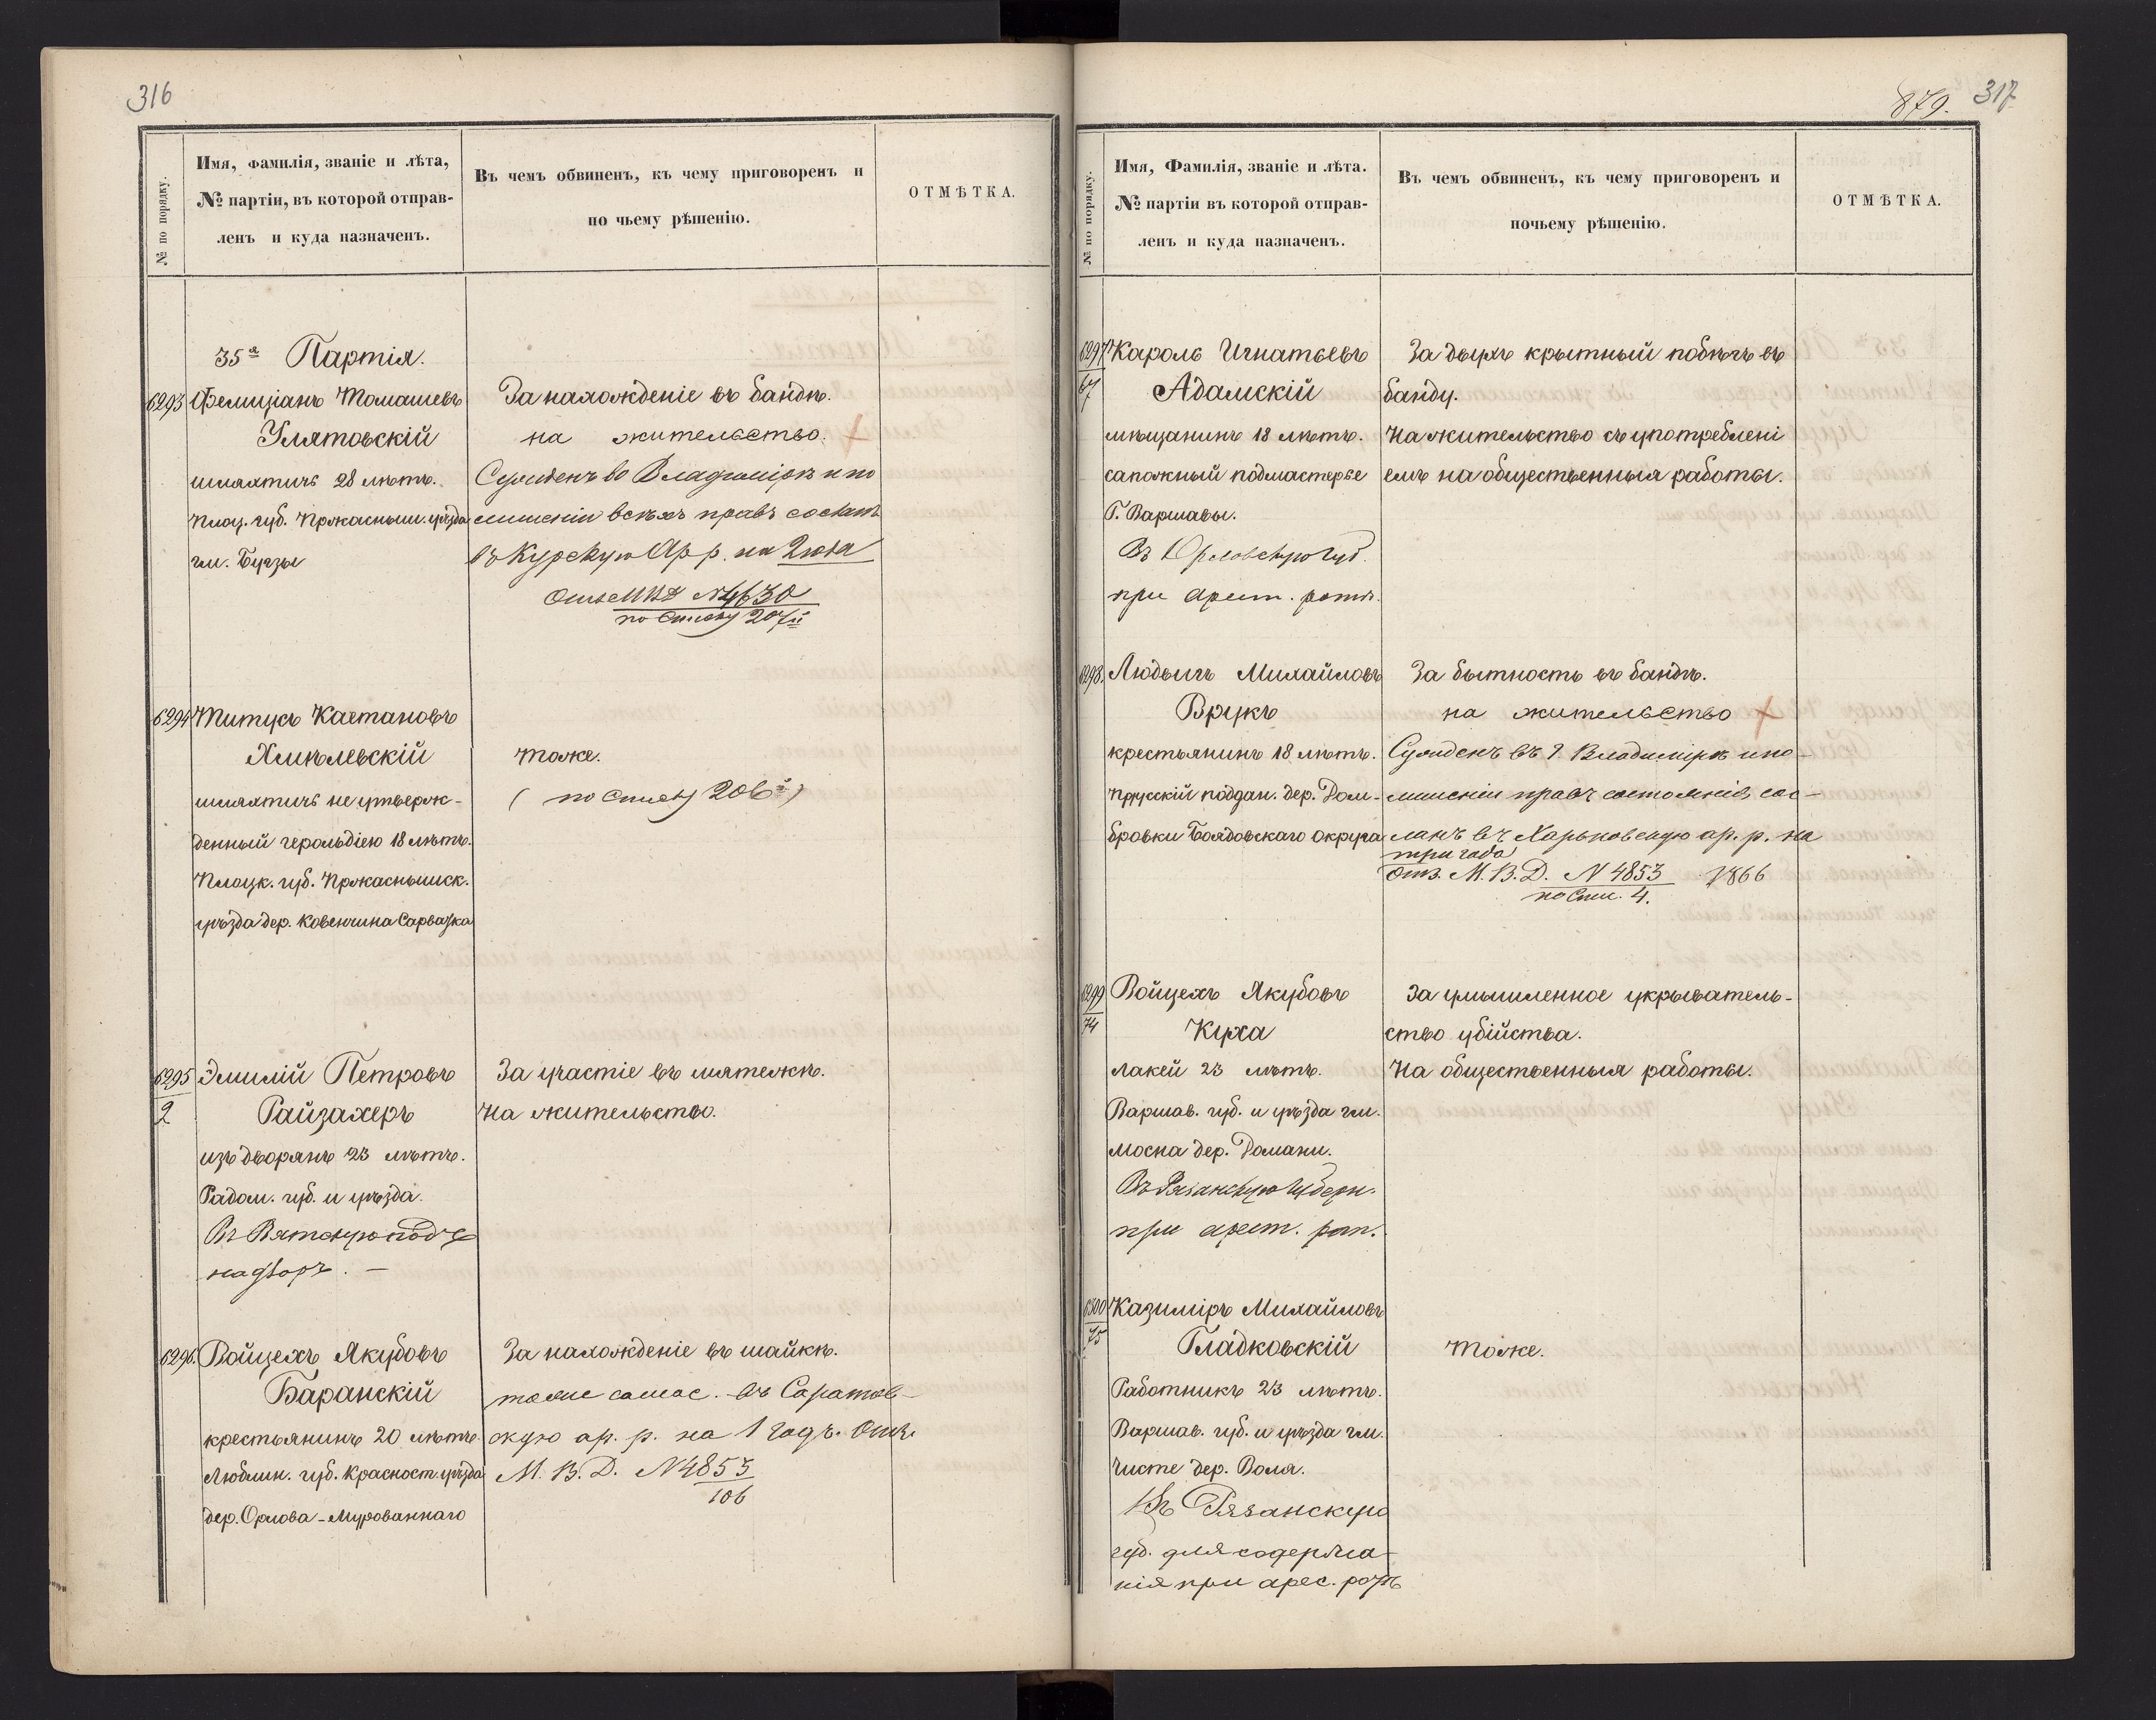 316
№ по порядку.
Имя, фамилія, званіе и лѣта,
№ партіи, въ которой отправ-
ленъ и куда назначенъ.
Въ чемъ обвиненъ, къ чему приговоренъ и
по чьему рѣшенію.
ОТМѢТКА.
35я Партія.
6293 Фелиціанъ Томашевъ
Улятовскій
шляхтичь 28 лѣтъ.
Плоц. губ. Пржасныш. уѣзда
гм.
За нахожденіе въ бандѣ.
на жительство.
Сужденъ во Владимірѣ и по
лишеніи всѣхъ правъ
въ Курскую Ар р. на 2 года
Отз МВД №4630
по списку 207й
6294 Титусъ Каетановъ
Хмѣлевскій
шляхтичь не утверж-
денный герольдіею 18 лѣтъ.
Плоцк. губ. Пржаснышск.
уѣзда дер. Ковенчина
тоже.
( по списку 206й)
6295
2
Эмилій Петровъ
Райзахеръ
изъ дворянъ 23 лѣтъ.
Радом. губ. и уѣзда.
Въ Вятскую подъ
надзоръ. —
За участіе въ мятежѣ.
На жительство.
6296. Войцехъ Якубовъ
Баранскій
крестьянинъ 20 лѣтъ.
Люблин. губ. Красност. уѣзда
дер. Орлова-Мурованнаго
За нахожденіе въ шайкѣ.
тоже самое. въ Саратов-
скую ар. р. на 1 годъ. Отз.
М. В. Д. №4853
106
879. 317
№ по порядку.
Имя, Фамилія, званіе и лѣта.
№ партіи въ которой отправ-
ленъ и куда назначенъ.
Въ чемъ обвиненъ, къ чему приговоренъ и
почьему рѣшенію.
ОТМѢТКА.
6297
67
Кароль Игнатьевъ
Адамскій
мѣщанинъ 18 лѣтъ.
сапожный подмастерье
Г. Варшавы.
Въ Орловскую губ.
при арест. ротѣ.
За двухъ крытный побѣгъ въ
банду.
На жительство съ употребленi
емъ на общественныя работы.
6298. Людвигъ Михайловъ
Врукъ
крестьянинъ 18 лѣтъ.
Прусскій поддан. дер. Дом-
бровки округа
За бытность въ бандѣ.
на жительство
Сужденъ въ г. Владимірѣ и по-
лишеніи правъ состоянія, сос-
ланъ въ Харьковскую ар. р. на
три года
Отз. М. В. Д. № 4853 1866
по спис. 4.
6299
74
Войцехъ Якубовъ
Куха
лакей 23 лѣтъ.
Варшав. губ. и уѣзда гм.
Мосна дер. Домани.
Въ Рязанскую Губерн.
при арест. рот.
За умышленное укрыватель-
ство убійства.
На общественныя работы.
6300
75
Казиміръ Михайловъ
Гладковскій
Работникъ 23 лѣтъ.
Варшав. губ. и уѣзда гм.
Чисте дер. Воля.
Въ Рязанскую
губ. для содержа-
нія при арес. ротѣ
тоже.